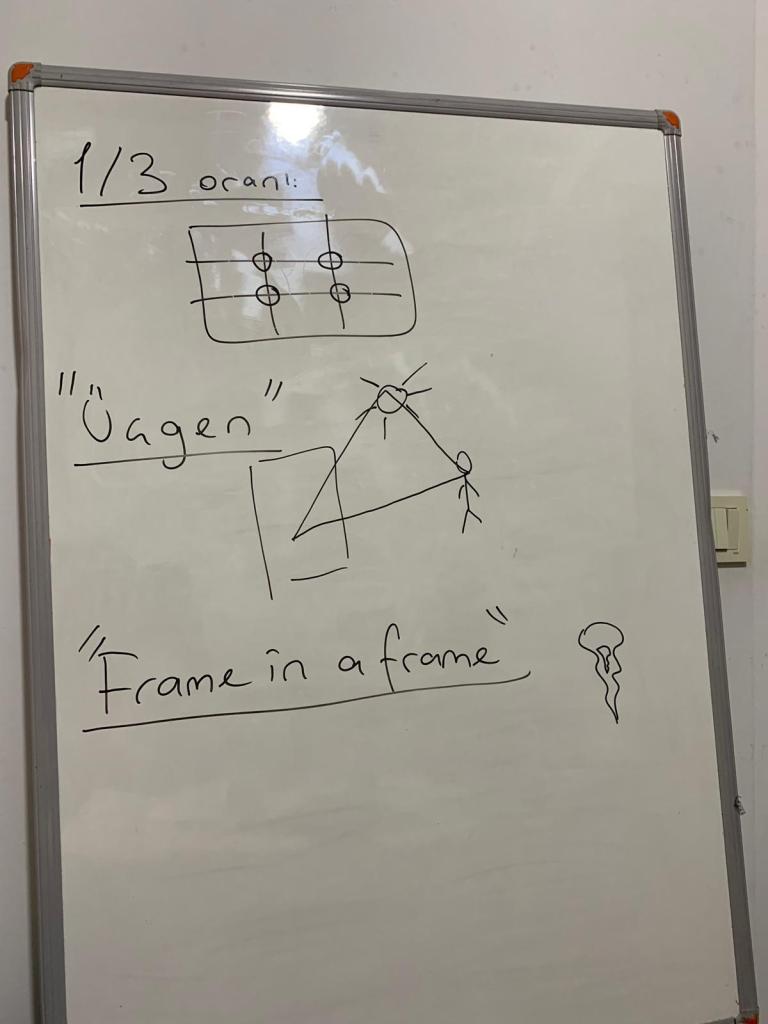 1/3 oranı:
"Üagen"
"Frame in a frame"